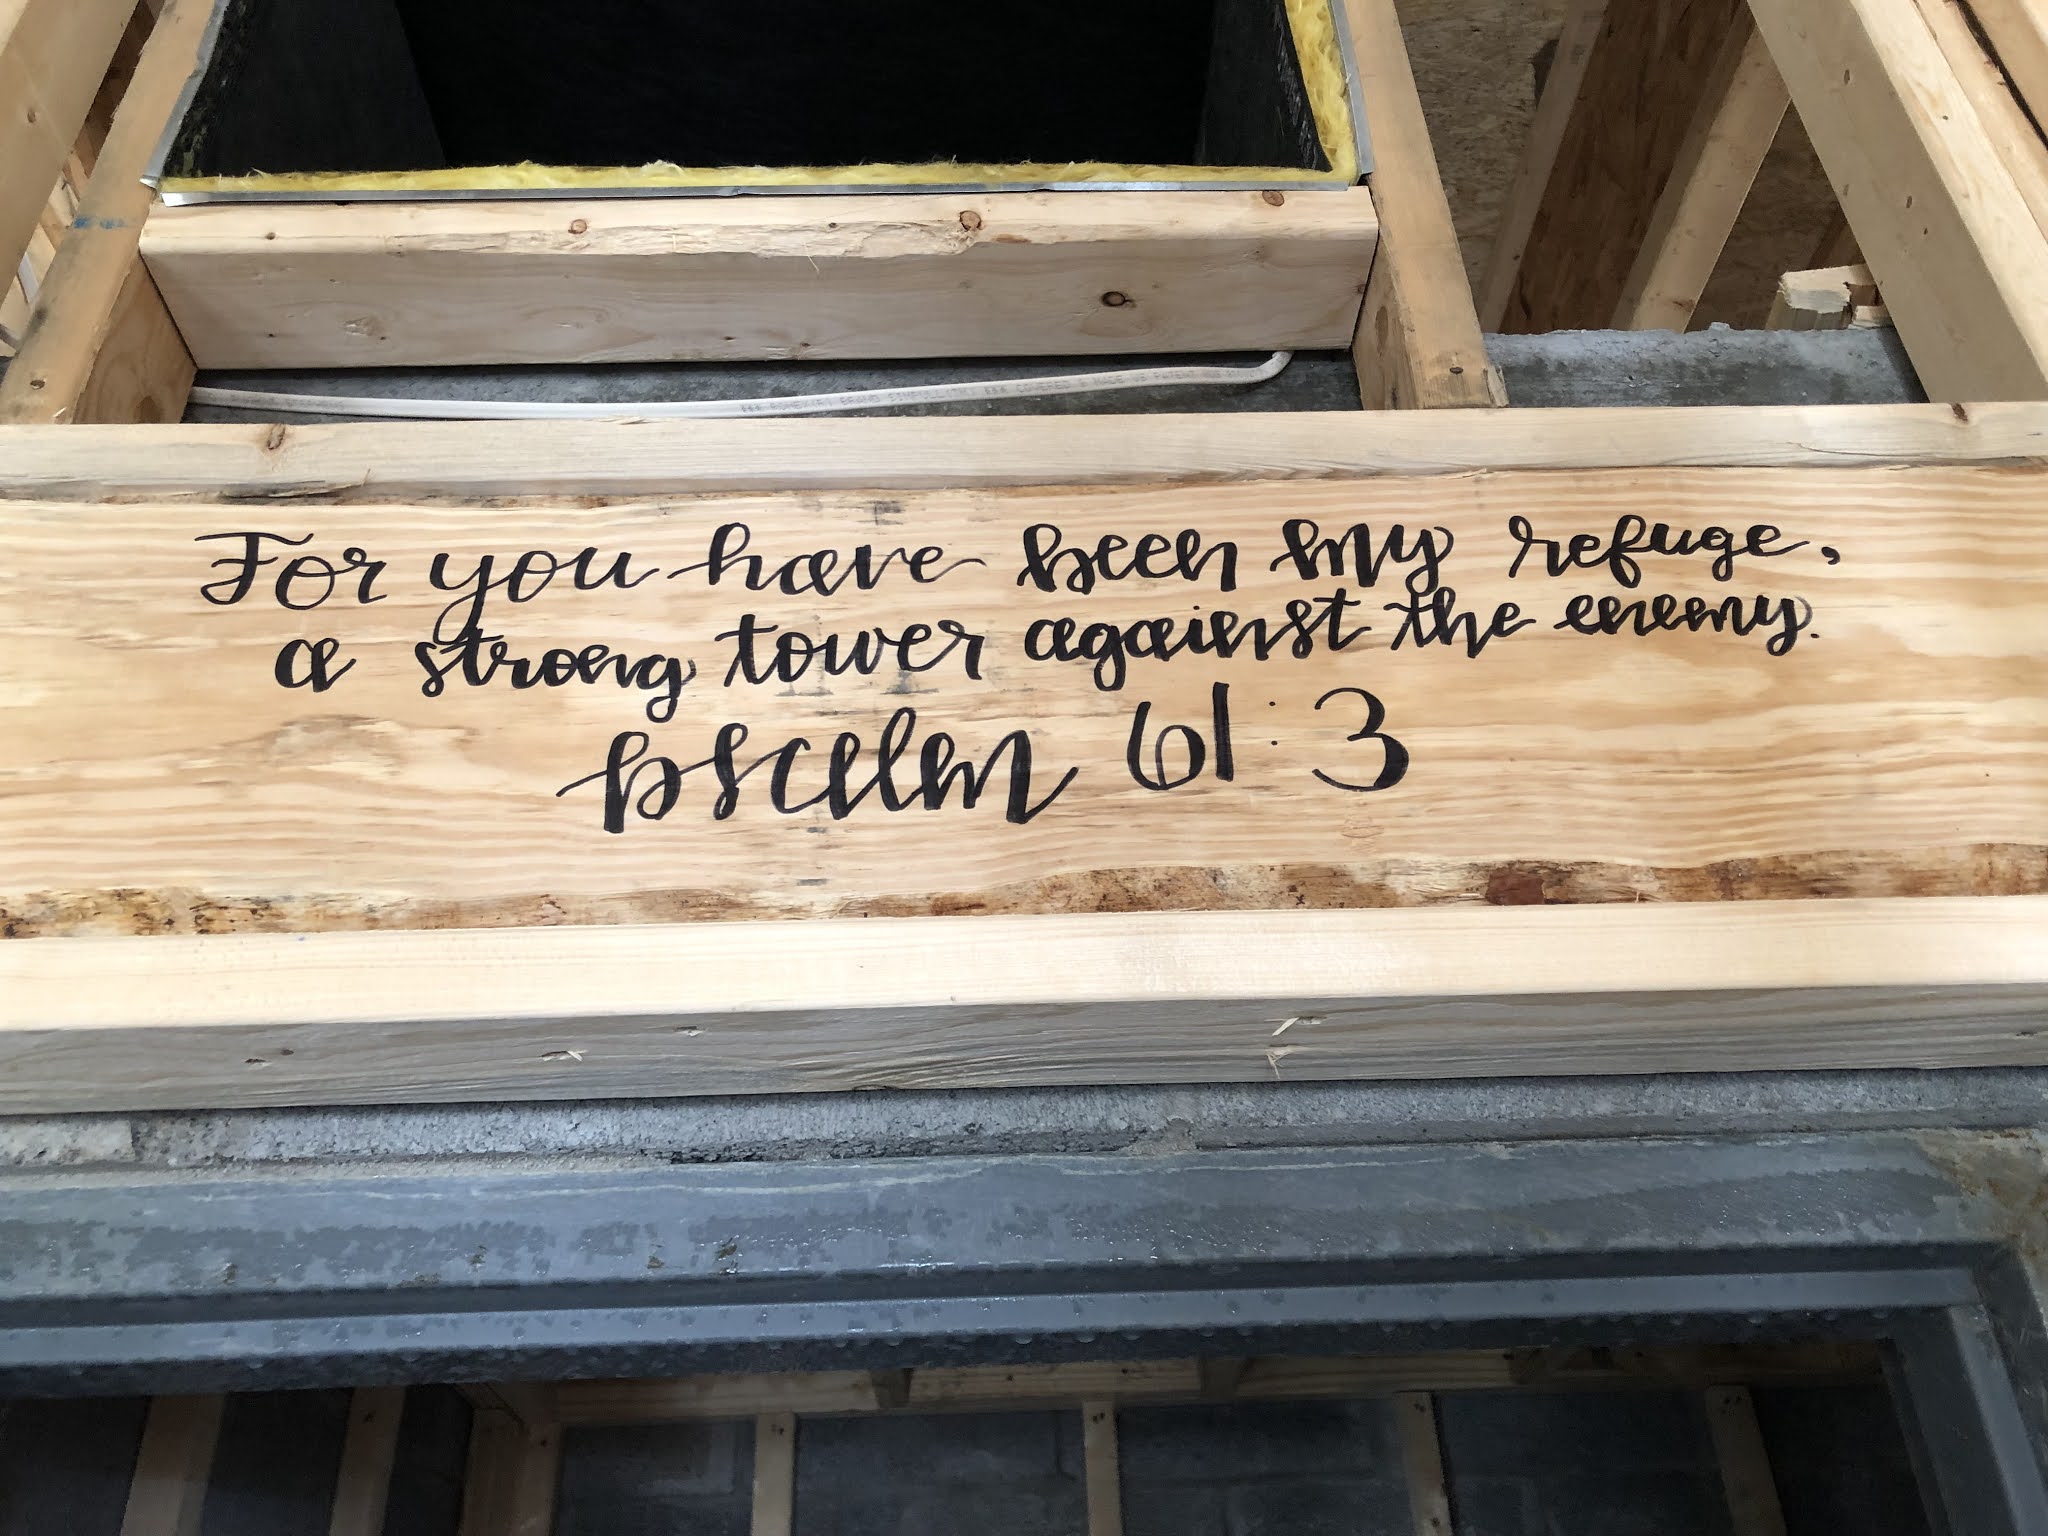 For you have been my refuge,
a strong tower against the enemy.
psalm 61:3